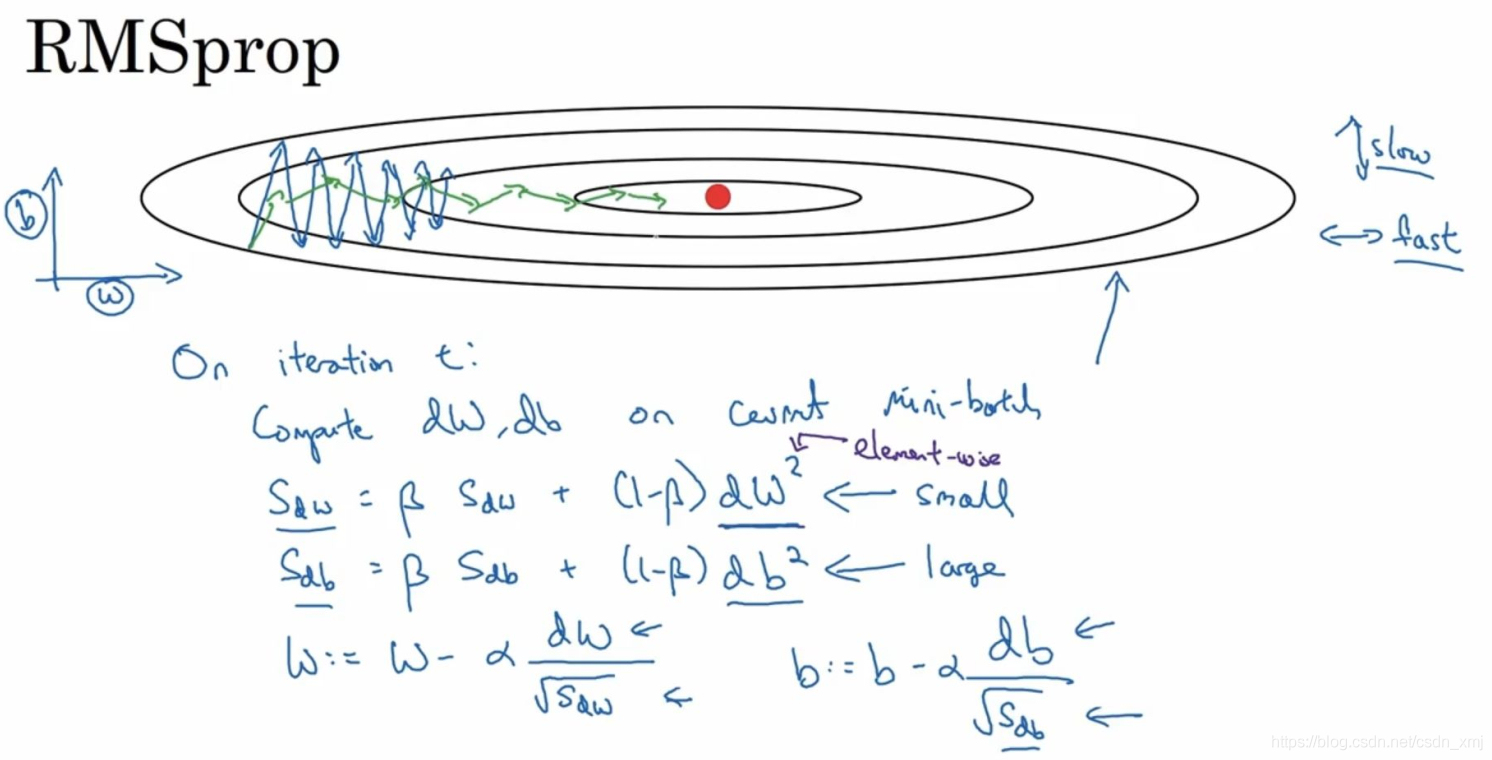 RMSprop
b
w
slow
fast
On iteration t:
Compute dW, db on current mini-batch
element-wise
Sdw = β Sdw + (1-β) dW² ← small
Sdb = β Sdb + (1-β) db² ← large
W := W - α dW / √Sdw    b := b - α db / √Sdb
https://blog.csdn.net/csdn_xmj